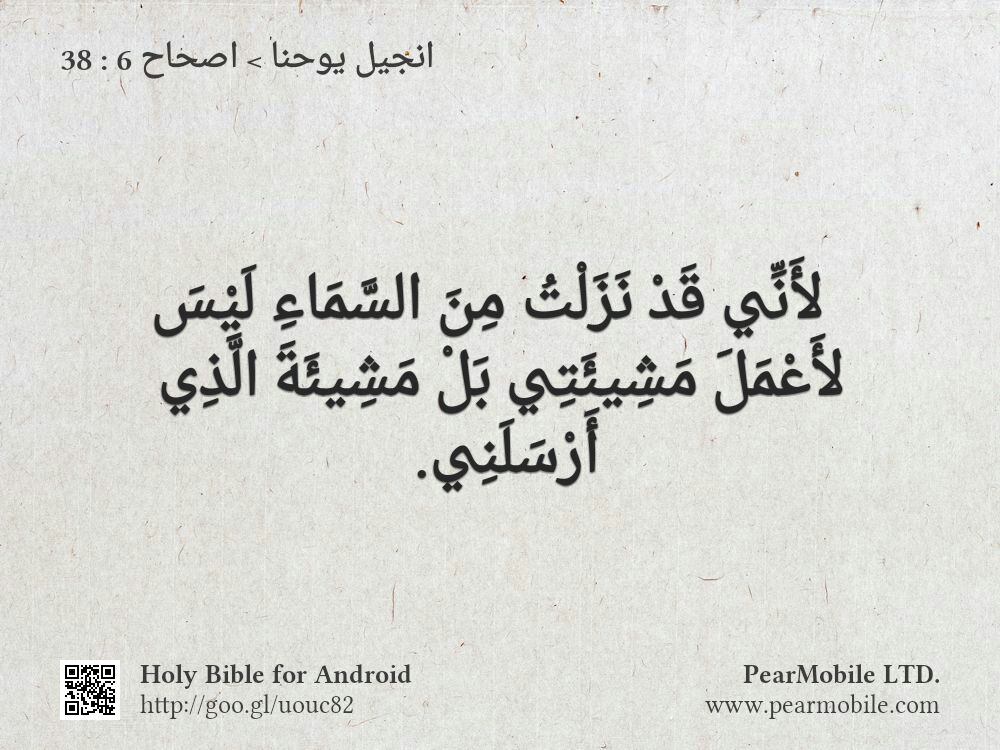 انجيل يوحنا > اصحاح 6 : 38
لأَنِّي قَدْ نَزَلْتُ مِنَ السَّمَاءِ لَيْسَ
لأَعْمَلَ مَشِيئَتِي بَلْ مَشِيئَةَ الَّذِي
أَرْسَلَنِي.
Holy Bible for Android
http://goo.gl/uouc82
PearMobile LTD.
www.pearmobile.com